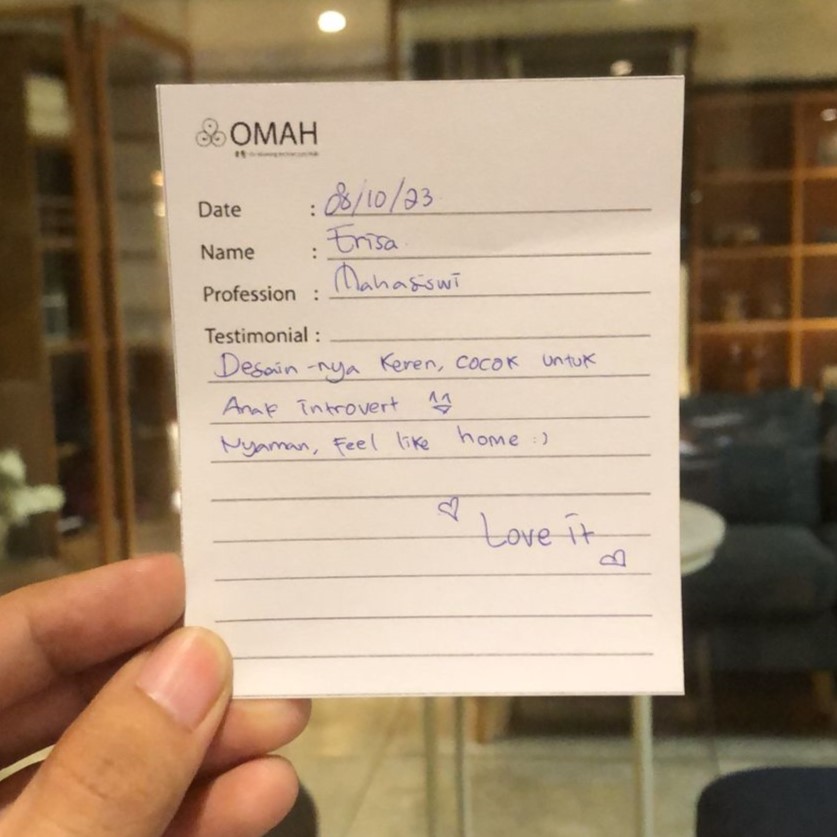 OMAH
Date : 08/10/23
Name : Erisa
Profession : Mahasiswi
Testimonial :
Desain-nya Keren, cocok untuk
Anak introvert ^^
Nyaman, Feel like home :)
♡ Love it ♡